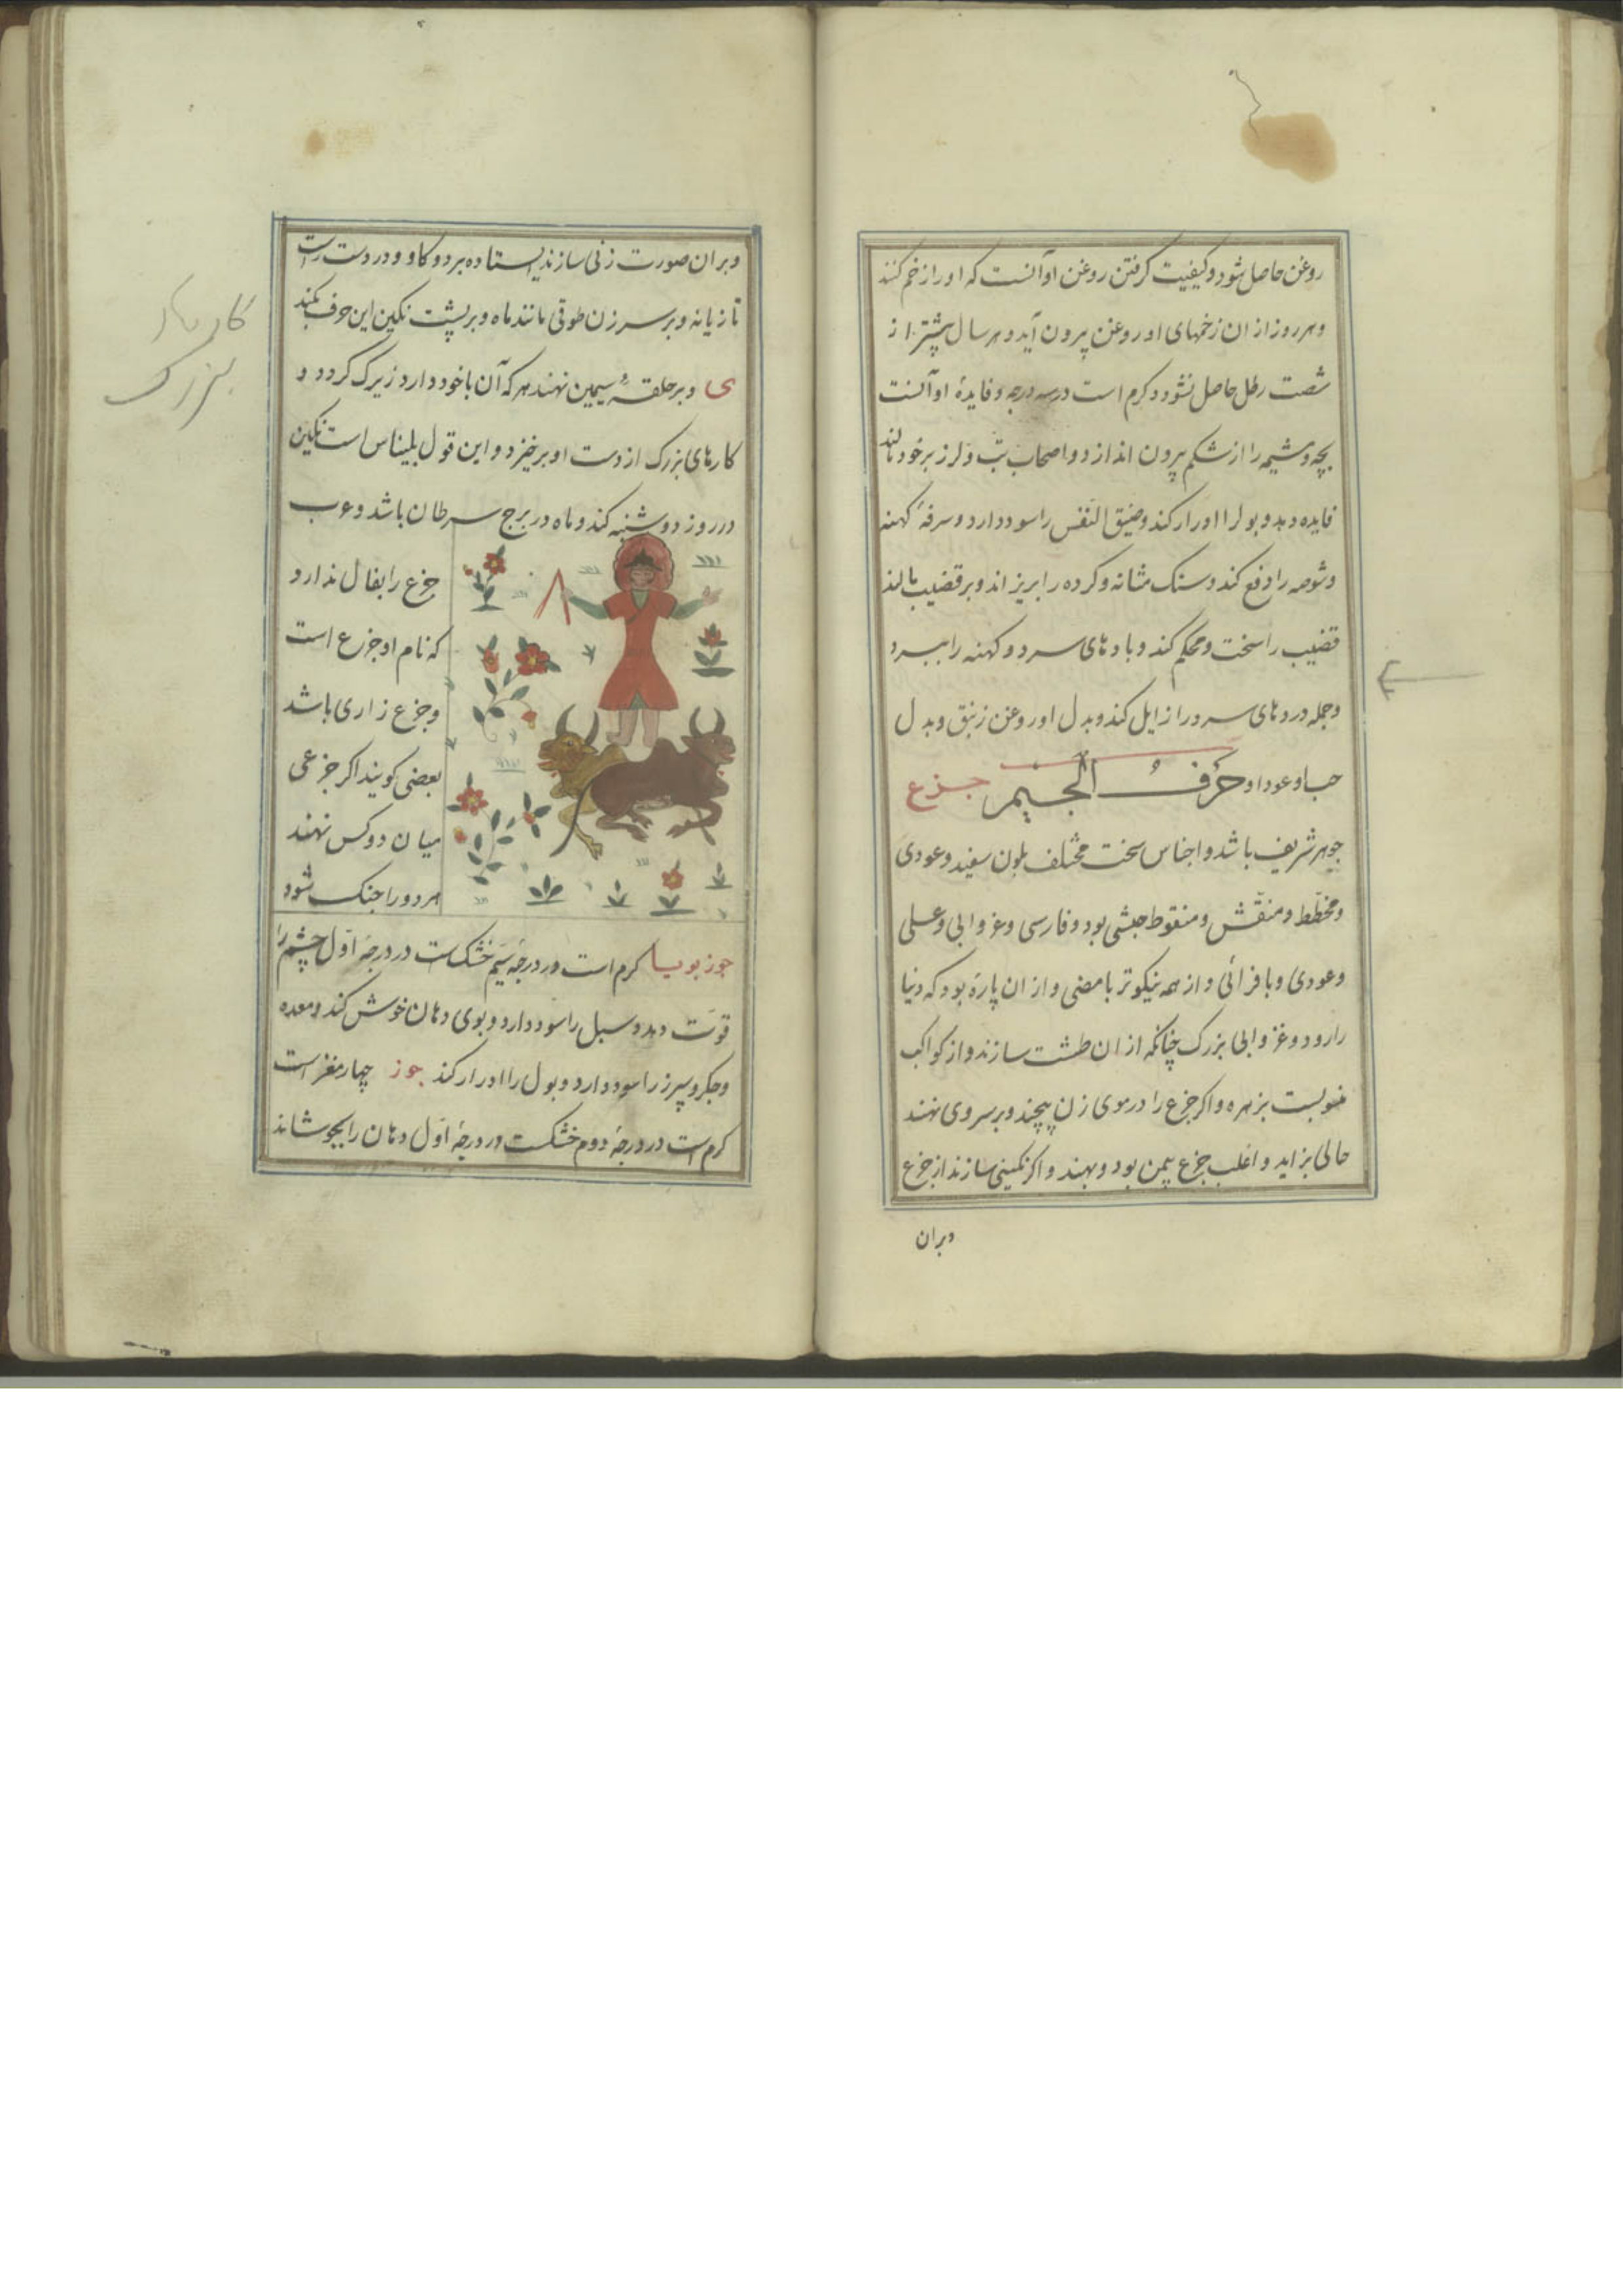 روغن حاصل شود و کیفیت کرفتن روغن او آنست که او را زخم کنند
و هر روز از ان زخمهای او روغن بیرون آید و هر سال بیشتر از
شصت رطل حاصل نشود و کرم است در سه درجه و فایدۀ او آنست
بچه و مشیمه را از شکم بیرون اندازد و اصحاب تب و لرز بر خود مالند
فایده دهد و بول را ادرار کند و ضیق النفس را سود دارد و سرفۀ کهنه
و شوصه را دفع کند و سنک مثانه و کرده را بریزاند و بر قضیب مالند
قضیب را سخت و محکم کند و بادهای سرد و کهنه را ببرد
و جمله دردهای سرد را زایل کند و بدل او روغن زنبق و بدل
حب او عود او حرف الجیم جزع
جوهر شریف باشد و اجناس سخت مختلف بلون سفید و عودی
و مخطط و منقش و منقوط حبشی بود و فارسی و غروابی و عسلی
و عودی و از همه نیکوتر و از ان پارۀ بود که
را رود و غروابی بزرک چنانکه از ان طشت سازند و از کواکب
منسوبست بزهره و اکر جزع را در موی زن پیچند و بر سر وی نهند
حالی بزاید و اغلب جزع بیمن بود و بهند و اکر نکینی سازند از جزع
وبران
وبران صورت زنی سازند ایستاده بر دو کاو و در دست راست
تازیانه و بر سر زن طوقی مانند ماه و بر پشت نکین این حرف بکند
ی و بر حلقۀ سیمین نهند هر که آن با خود دارد زیرک کردد و
کارهای بزرک از دست او برخیزد و این قول بلیناس است نکین
در روز دوشنبه کند و ماه در برج سرطان باشد و عرب
جزع را بفال ندارد
که نام او جزع است
و جزع زاری باشد
بعضی کویند اکر جزعی
میان دو کس نهند
هر دو را جنک شود
جوز بویا کرم است در درجۀ سیم خشکست در درجۀ اول چشم را
قوت دهد و سبل را سود دارد و بوی دهان خوش کند و معده
و جکر و سپرز را سود دارد و بول را ادرار کند جوز چهار مغز است
کرم است در درجۀ دوم خشکست در درجۀ اول دهان را بجوشاند
کارهای
بزرک